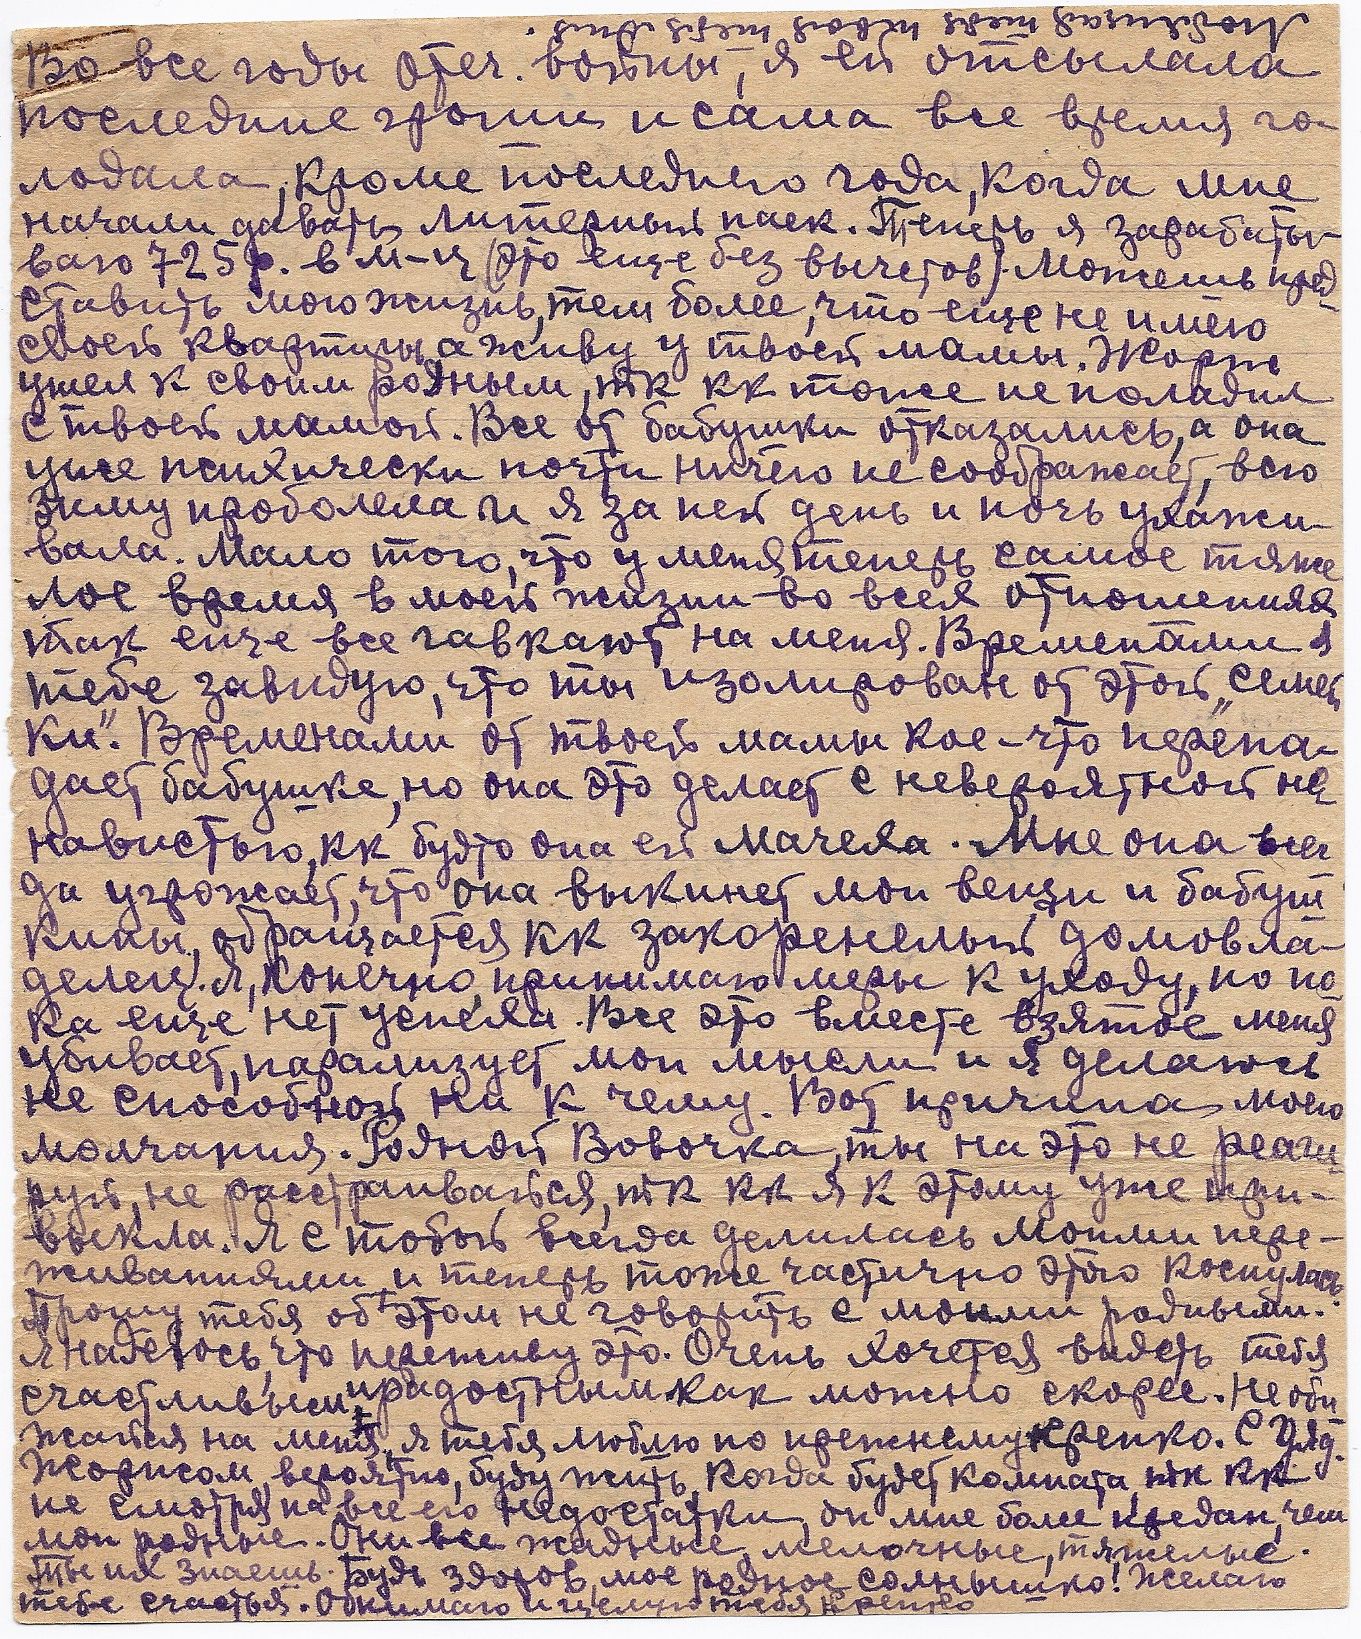 Во все годы отеч. войны, я ей отсылала
последние гроши и сама все время го-
лодала, кроме последнего года, когда мне
начали давать литерный паек. Теперь я зарабаты-
ваю 725 р. в м-ц (это еще без вычетов). Можешь пред-
ставить мою жизнь, тем более, что еще не имею
своей квартиры, а живу у твоей мамы. Жорж
ушел к своим родным, тк кк тоже не поладил
с твоей мамой. Все от бабушки отказались, а она
уже психически почти ничего не соображает, всю
зиму проболела и я за ней день и ночь ухажи-
вала. Мало того, что у меня теперь самое тяже
лое время в моей жизни во всех отношениях
так еще все гавкают на меня. Временами я
тебе завидую, что ты изолирован от этой „семей
ки". Временами от твоей мамы кое-что перепа-
дает бабушке, но она это делает с невероятной не-
навистью, кк будто она ей мачеха. Мне она всег
да угрожает, что она выкинет мои вещи и бабуш
кины, обращается кк закоренелый домовла-
делец. Я, конечно, принимаю меры к уходу, но по
ка еще нет успеха. Все это вместе взятое меня
убивает, парализует мои мысли и я делаюсь
не способной ни к чему. Вот причина моего
молчания. Родной Вовочка, ты на это не реаги
руй, не расстраивайся, тк кк я к этому уже при-
выкла. Я с тобой всегда делилась моими пере-
живаниями и теперь тоже частично этого коснулась.
Прошу тебя об этом не говорить с моими родными.
Я надеюсь, что переживу это. Очень хочется видеть тебя
счастливым и радостным как можно скорее. Не оби
жайся на меня, я тебя люблю по прежнему крепко. С дяд.
Жоржом, вероятно, буду жить, когда будет комната, тк кк
не смотря на все его недостатки, он мне более предан, чем
мои родные. Они все жадные, мелочные, тяжелые.
Ты их знаешь. Будь здоров, мое родное солнышко! Желаю
тебе счастья. Обнимаю и целую тебя крепко
Любящая тебя твоя тетя